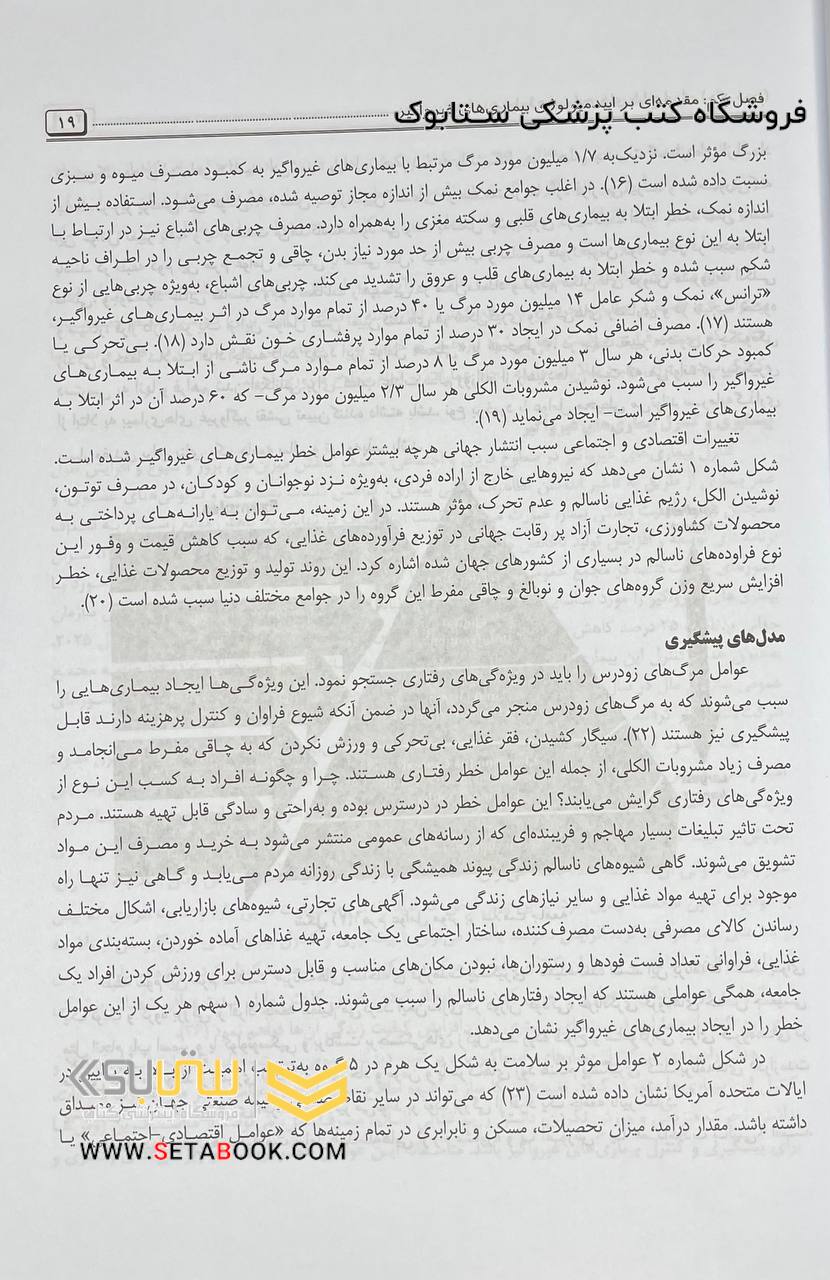 فصل یکم: مقدمه‌ای بر اپیدمیولوژی بیماری‌های غیرواگیر
فروشگاه کتب پزشکی ستابوک
۱۹
بزرگ مؤثر است. نزدیک‌به ۱/۷ میلیون مورد مرگ مرتبط با بیماری‌های غیرواگیر به کمبود مصرف میوه و سبزی
نسبت داده شده است (۱۶). در اغلب جوامع نمک بیش از اندازه مجاز توصیه شده، مصرف می‌شود. استفاده بیش از
اندازه نمک، خطر ابتلا به بیماری‌های قلبی و سکته مغزی را به‌همراه دارد. مصرف چربی‌های اشباع نیز در ارتباط با
ابتلا به این نوع بیماری‌ها است و مصرف چربی بیش از حد مورد نیاز بدن، چاقی و تجمع چربی را در اطراف ناحیه
شکم سبب شده و خطر ابتلا به بیماری‌های قلب و عروق را تشدید می‌کند. چربی‌های اشباع، به‌ویژه چربی‌هایی از نوع
«ترانس»، نمک و شکر عامل ۱۴ میلیون مورد مرگ یا ۴۰ درصد از تمام موارد مرگ در اثر بیماری‌های غیرواگیر،
هستند (۱۷). مصرف اضافی نمک در ایجاد ۳۰ درصد از تمام موارد پرفشاری خون نقش دارد (۱۸). بی‌تحرکی یا
کمبود حرکات بدنی، هر سال ۳ میلیون مورد مرگ یا ۸ درصد از تمام موارد مرگ ناشی از ابتلا به بیماری‌های
غیرواگیر را سبب می‌شود. نوشیدن مشروبات الکلی هر سال ۲/۳ میلیون مورد مرگ- که ۶۰ درصد آن در اثر ابتلا به
بیماری‌های غیرواگیر است- ایجاد می‌نماید (۱۹).
تغییرات اقتصادی و اجتماعی سبب انتشار جهانی هرچه بیشتر عوامل خطر بیماری‌های غیرواگیر شده است.
شکل شماره ۱ نشان می‌دهد که نیروهایی خارج از اراده فردی، به‌ویژه نزد نوجوانان و کودکان، در مصرف توتون،
نوشیدن الکل، رژیم غذایی ناسالم و عدم تحرک، مؤثر هستند. در این زمینه، می‌توان به یارانه‌های پرداختی به
محصولات کشاورزی، تجارت آزاد پر رقابت جهانی در توزیع فرآورده‌های غذایی، که سبب کاهش قیمت و وفور این
نوع فراوده‌های ناسالم در بسیاری از کشورهای جهان شده اشاره کرد. این روند تولید و توزیع محصولات غذایی، خطر
افزایش سریع وزن گروه‌های جوان و نوبالغ و چاقی مفرط این گروه را در جوامع مختلف دنیا سبب شده است (۲۰).
مدل‌های پیشگیری
عوامل مرگ‌های زودرس را باید در ویژه‌گی‌های رفتاری جستجو نمود. این ویژه‌گی‌ها ایجاد بیماری‌هایی را
سبب می‌شوند که به مرگ‌های زودرس منجر می‌گردد، آنها در ضمن آنکه شیوع فراوان و کنترل پرهزینه دارند قابل
پیشگیری نیز هستند (۲۲). سیگار کشیدن، فقر غذایی، بی‌تحرکی و ورزش نکردن که به چاقی مفرط می‌انجامد و
مصرف زیاد مشروبات الکلی، از جمله این عوامل خطر رفتاری هستند. چرا و چگونه افراد به کسب این نوع از
ویژه‌گی‌های رفتاری گرایش می‌یابند؟ این عوامل خطر در درسترس بوده و به‌راحتی و سادگی قابل تهیه هستند. مردم
تحت تاثیر تبلیغات بسیار مهاجم و فریبنده‌ای که از رسانه‌های عمومی منتشر می‌شود به خرید و مصرف این مواد
تشویق می‌شوند. گاهی شیوه‌های ناسالم زندگی پیوند همیشگی با زندگی روزانه مردم می‌یابد و گاهی نیز تنها راه
موجود برای تهیه مواد غذایی و سایر نیازهای زندگی می‌شود. آگهی‌های تجارتی، شیوه‌های بازاریابی، اشکال مختلف
رساندن کالای مصرفی به‌دست مصرف‌کننده، ساختار اجتماعی یک جامعه، تهیه غذاهای آماده خوردن، بسته‌بندی مواد
غذایی، فراوانی تعداد فست فودها و رستوران‌ها، نبودن مکان‌های مناسب و قابل دسترس برای ورزش کردن افراد یک
جامعه، همگی عواملی هستند که ایجاد رفتارهای ناسالم را سبب می‌شوند. جدول شماره ۱ سهم هر یک از این عوامل
خطر را در ایجاد بیماری‌های غیرواگیر نشان می‌دهد.
در شکل شماره ۲ عوامل موثر بر سلامت به شکل یک هرم در ۵ گروه به‌ترتیب اهمیت از در
ایالات متحده آمریکا نشان داده شده است (۲۳) که می‌تواند در سایر نقاط صنعتی جهان نیز مصداق
داشته باشد. مقدار درآمد، میزان تحصیلات، مسکن و نابرابری در تمام زمینه‌ها که «عوامل اقتصادی-اجتماعی» یا
ستابوک
فروشگاه اینترنتی کتاب
WWW.SETABOOK.COM